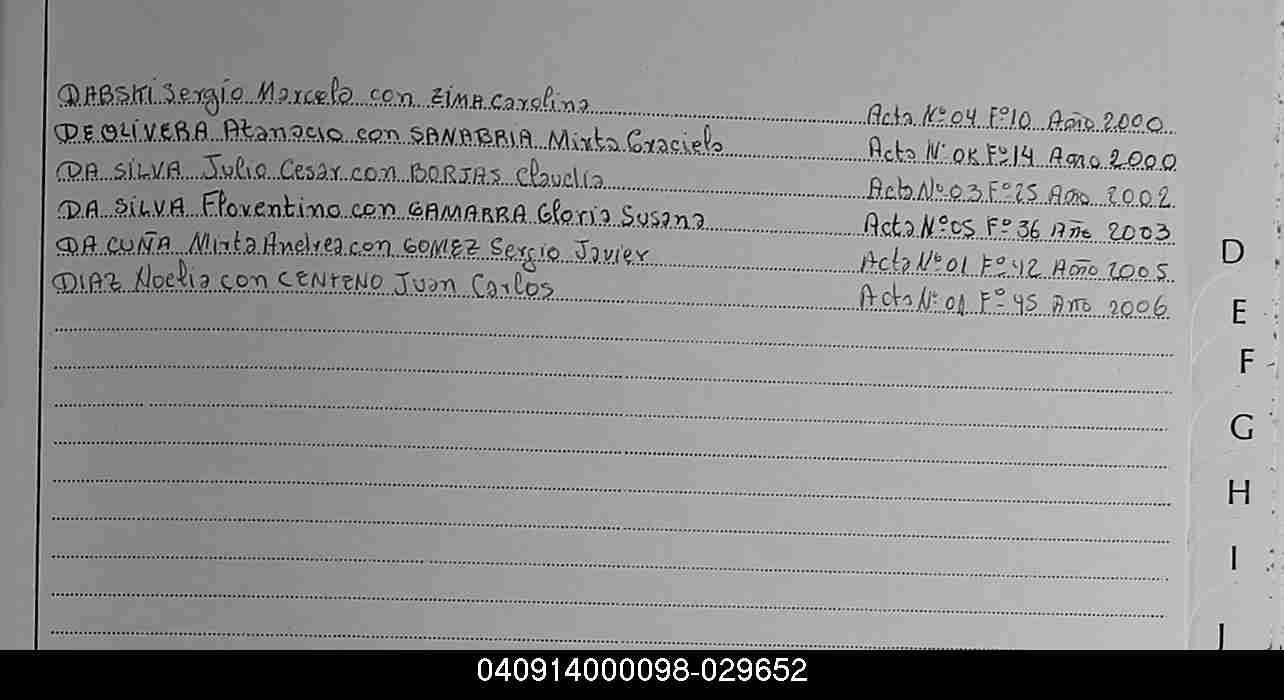 DABSKI Sergio Marcelo con ZIMA Carolina Acta Nº 04 Fº 10 Año 2000
DE OLIVERA Atanacio con SANABRIA Mirta Graciela Acta Nº Fº 14 Año 2000
DA SILVA Julio Cesar con BORJAS Claudia Acta Nº 03 Fº 25 Año 2002
DA SILVA Florentino con GAMARRA Gloria Susana Acta Nº 05 Fº 36 Año 2003
DA CUÑA Mirta Andrea con GOMEZ Sergio Javier Acta Nº 01 Fº 42 Año 2005
DIAZ Noelia con CENTENO Juan Carlos Acta Nº 01 Fº 45 Año 2006
D
E
F
G
H
I
J
040914000098-029652